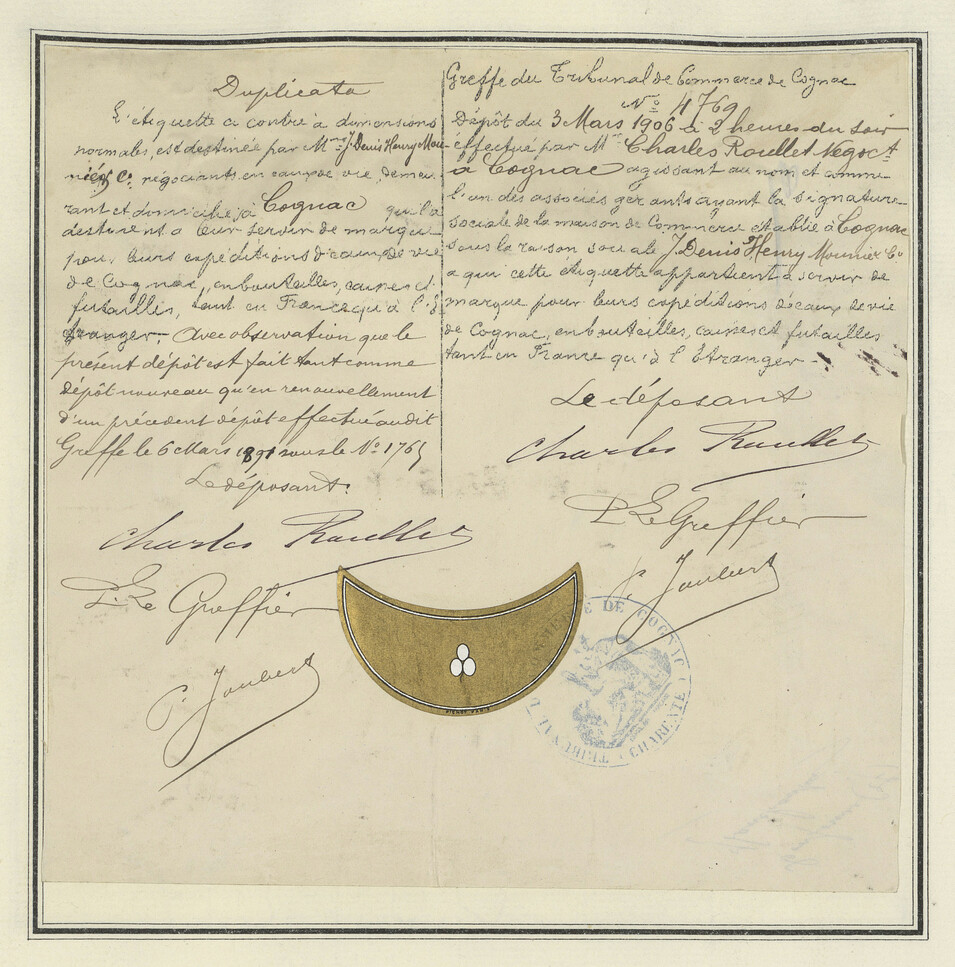 Duplicata
L'étiquette ci contre à dimensions
normales, est destinée par Mrs J. Denis Henry Mou-
nié & Co. négociants en eaux de vie, demeu
rant et domiciliés à Cognac qui la
destinent à leur servir de marque
pour leurs expéditions d'eaux de vie
de Cognac, en bouteilles, caisses et
futailles, tant en France qu'à l'É
tranger. Avec observation que le
présent dépôt est fait tant comme
dépôt nouveau qu'en renouvellement
d'un précédent dépôt effectué audit
Greffe le 6 Mars 1891 sous le No. 1765
Le déposant:
Charles Roullet
P. Le Greffier
P. Joubert
Greffe du Tribunal de Commerce de Cognac
No. 4769
Dépôt du 3 Mars 1906 à 2 heures du soir
effectué par Mr Charles Roullet Négoct
à Cognac agissant au nom et comme
l'un des associés gérants ayant la signature
sociale de la maison de Commerce établie à Cognac
sous la raison sociale J. Denis Henry Mounié & Co
a qui cette étiquette appartient à servir de
marque pour leurs expéditions d'eaux de vie
de Cognac, en bouteilles, caisses et futailles
tant en France qu'à l'Etranger
Le déposant
Charles Roullet
P. Le Greffier
P. Joubert
TRIBUNAL DE COMMERCE DE COGNAC
CHARENTE